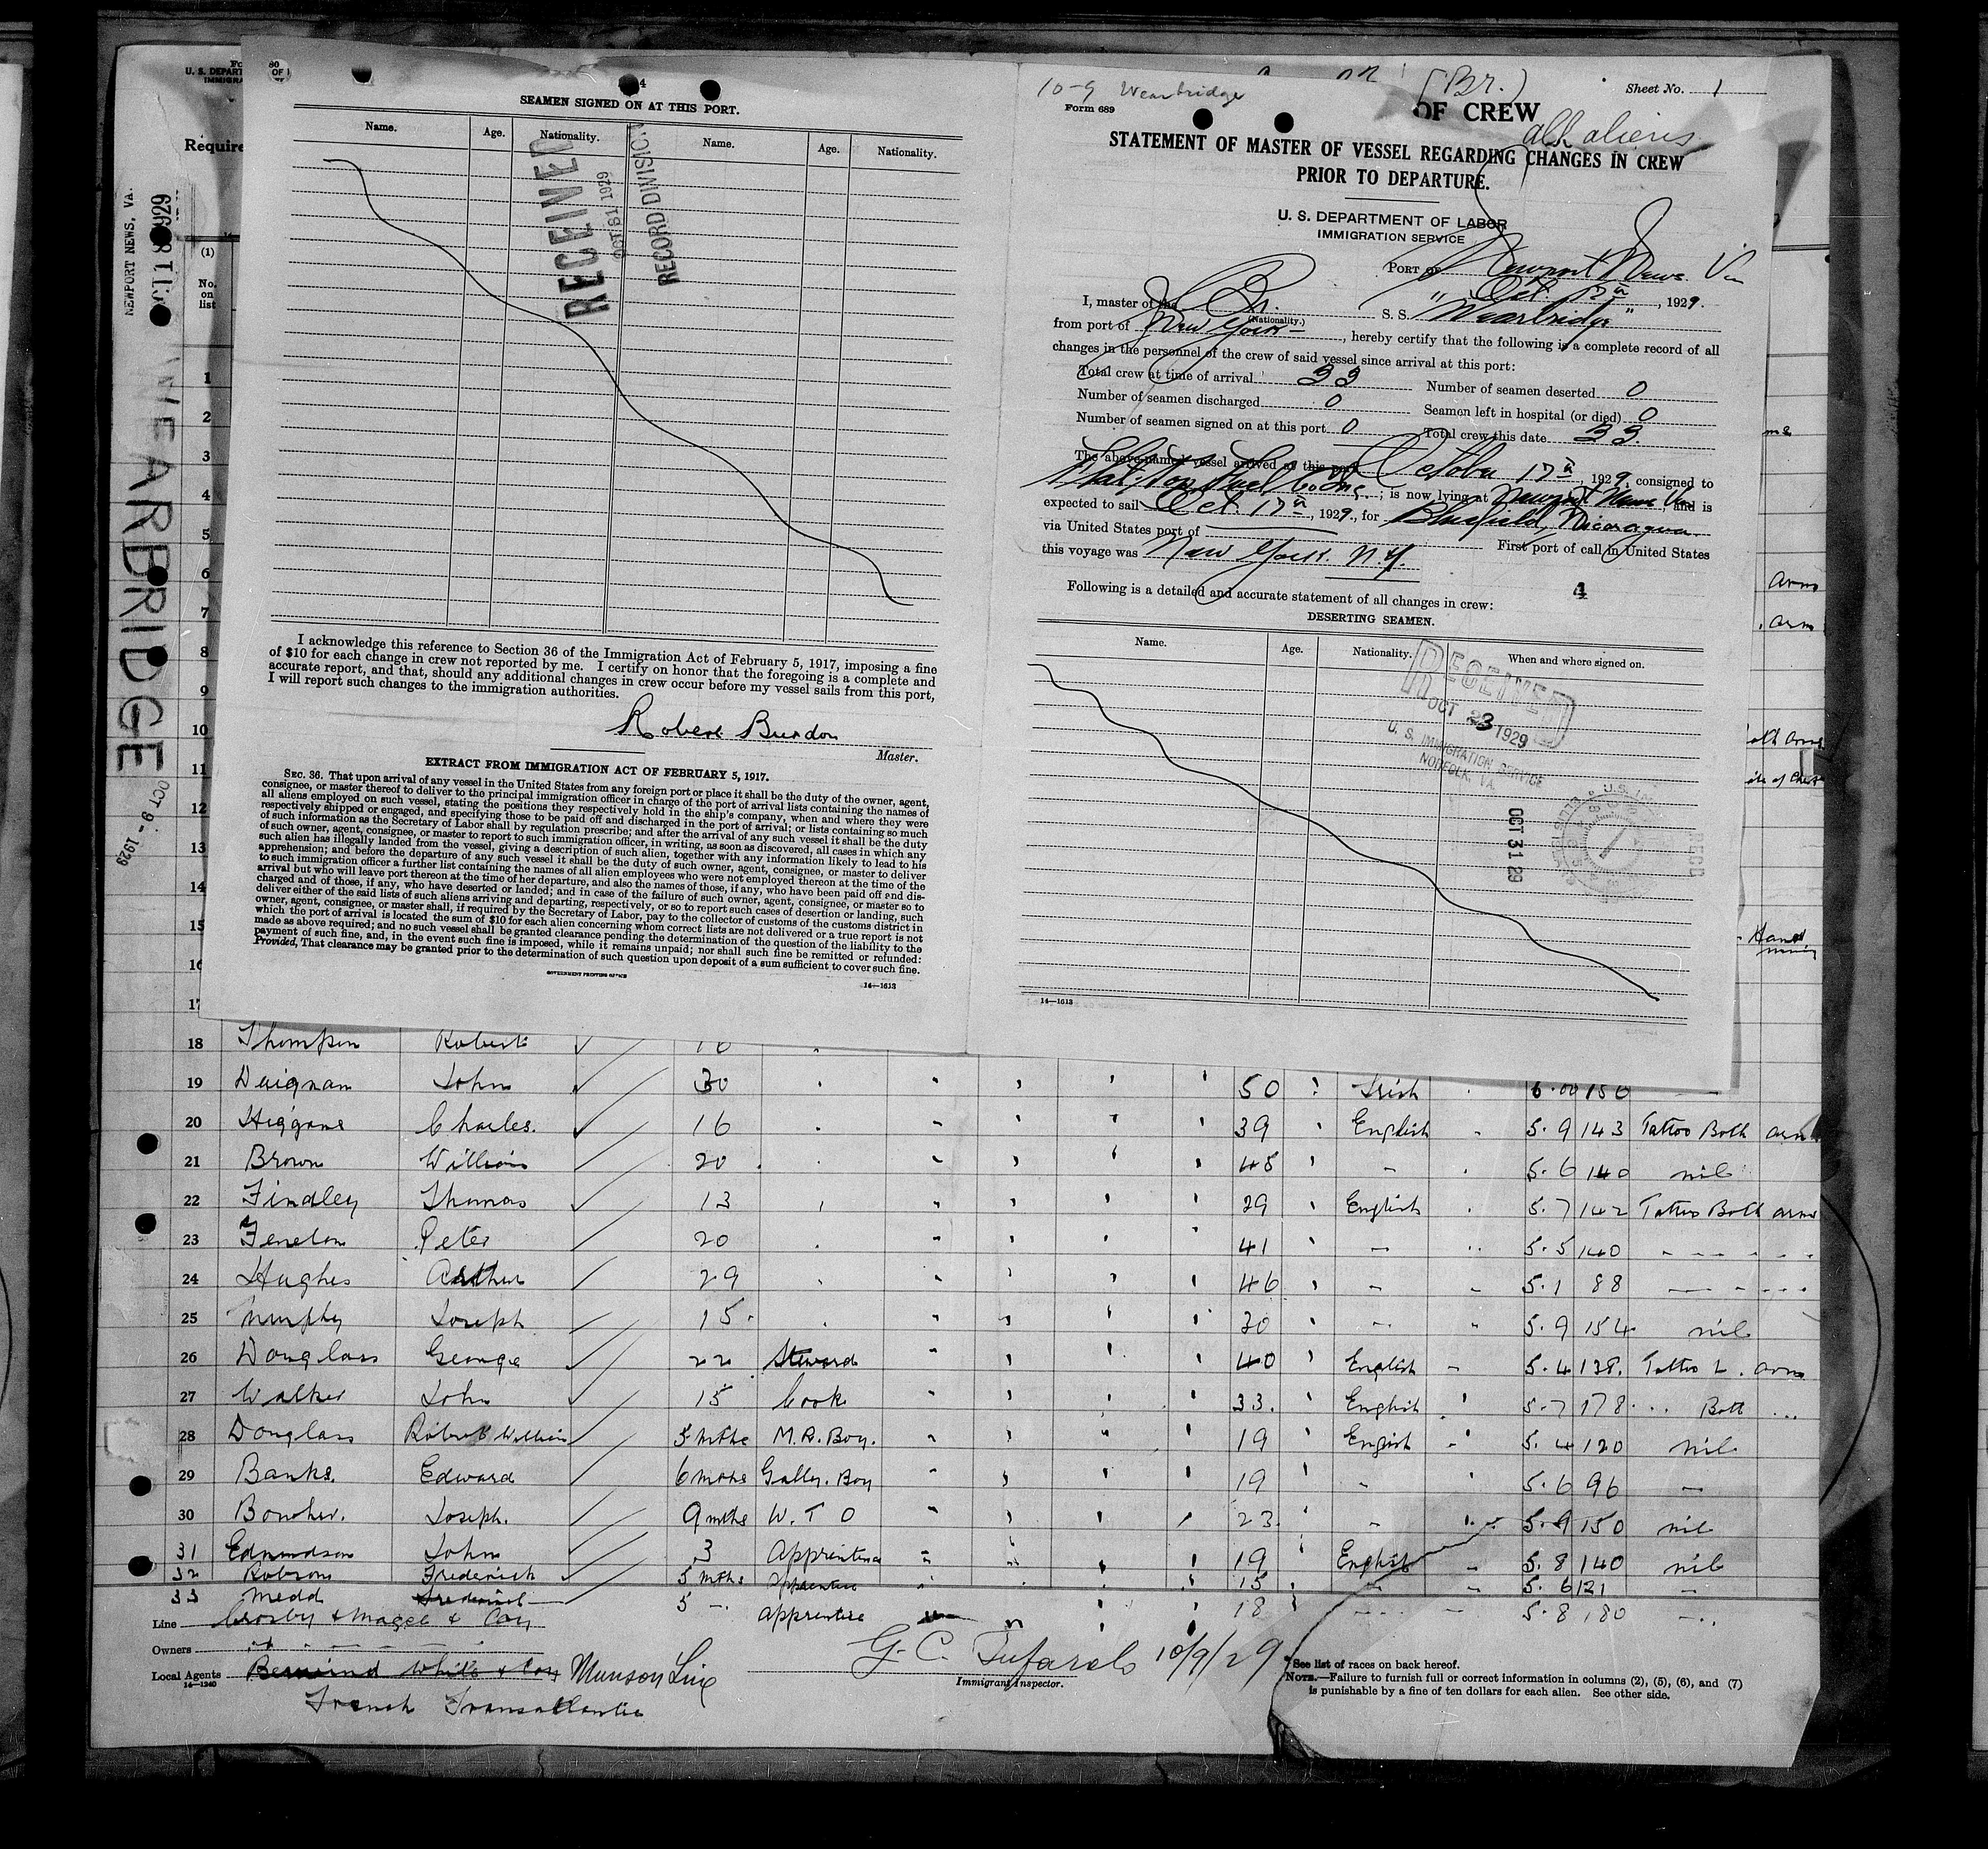 SEAMEN SIGNED ON AT THIS PORT.
Name. Age. Nationality. Name. Age. Nationality.
RECEIVED
OCT 31 1929
RECORD DIVISION
I acknowledge this reference to Section 36 of the Immigration Act of February 5, 1917, imposing a fine
of $10 for each change in crew not reported by me. I certify on honor that the foregoing is a complete and
accurate report, and that, should any additional changes in crew occur before my vessel sails from this port,
I will report such changes to the immigration authorities.
Robert Burdon
Master.
EXTRACT FROM IMMIGRATION ACT OF FEBRUARY 5, 1917.
SEC. 36. That upon arrival of any vessel in the United States from any foreign port or place it shall be the duty of the owner, agent,
consignee, or master thereof to deliver to the principal immigration officer in charge of the port of arrival lists containing the names of
all aliens employed on such vessel, stating the positions they respectively hold in the ship's company, when and where they were
respectively shipped or engaged, and specifying those to be paid off and discharged in the port of arrival; or lists containing so much
of such information as the Secretary of Labor shall by regulation prescribe; and after the arrival of any such vessel it shall be the duty
of such owner, agent, consignee, or master to report to such immigration officer, in writing, as soon as discovered, all cases in which any
such alien has illegally landed from the vessel, giving a description of such alien, together with any information likely to lead to his
apprehension; and before the departure of any such vessel it shall be the duty of such owner, agent, consignee, or master to deliver
to such immigration officer a further list containing the names of all alien employees who were not employed thereon at the time of the
arrival but who will leave port thereon at the time of her departure, and also the names of those, if any, who have been paid off and dis-
charged and of those, if any, who have deserted or landed; and in case of the failure of such owner, agent, consignee, or master so to
deliver either of the said lists of such aliens arriving and departing, respectively, or so to report such cases of desertion or landing, such
owner, agent, consignee, or master shall, if required by the Secretary of Labor, pay to the collector of customs of the customs district in
which the port of arrival is located the sum of $10 for each alien concerning whom correct lists are not delivered or a true report is not
made as above required; and no such vessel shall be granted clearance pending the determination of the question of the liability to the
payment of such fine, and, in the event such fine is imposed, while it remains unpaid; nor shall such fine be remitted or refunded:
Provided, That clearance may be granted prior to the determination of such question upon deposit of a sum sufficient to cover such fine.
GOVERNMENT PRINTING OFFICE
14—1613
10-9 Wearbridge
(Br.)
Sheet No. 1
Form 689
OF CREW
all aliens
STATEMENT OF MASTER OF VESSEL REGARDING CHANGES IN CREW
PRIOR TO DEPARTURE.
U. S. DEPARTMENT OF LABOR
IMMIGRATION SERVICE
PORT OF Newport News Va
Oct. 17th, 1929.
I, master of the Br. S. S. "Wearbridge"
(Nationality.)
from port of New York, hereby certify that the following is a complete record of all
changes in the personnel of the crew of said vessel since arrival at this port:
Total crew at time of arrival 33 Number of seamen deserted 0
Number of seamen discharged 0 Seamen left in hospital (or died) 0
Number of seamen signed on at this port 0 Total crew this date 33.
The above-named vessel arrived at this port October 17th, 1929, consigned to
; is now lying at Newport News Va, and is
expected to sail Oct. 17th, 1929., for Bluefield, Nicaragua
via United States port of First port of call in United States
this voyage was New York. N.Y.
Following is a detailed and accurate statement of all changes in crew: 4
DESERTING SEAMEN.
Name. Age. Nationality. When and where signed on.
RECEIVED
OCT 23 1929
U. S. IMMIGRATION SERVICE
NORFOLK, VA.
OCT 31 29
14—1613
U. S. DEPART
IMMIGRA
Require
NEWPORT NEWS, VA.
WEARBRIDGE
OCT 9 - 1929
(1)
No. on list
1
2
3
4
5
6
7
8
9
10
11
12
13
14
15
16
17
18 Thompson Robert 16
19 Duignan John 30 50 Irish 6.00 150
20 Higgans Charles. 16 39 English 5.9 143 Tattoo Both arm
21 Brown William 20 48 5.6 140 nil
22 Findley Thomas 13 29 English 5.7 142 Tattoo Both arms
23 Fenelon Peter 20 41 5.5 140
24 Hughes Arthur 29 46 5.1 88
25 Murphy Joseph 15 30 5.9 154 nil
26 Douglass George 22 Steward 40 English 5.4 138. Tattoo L. arm
27 Walker John 15 Cook 33. English 5.7 178 Both
28 Douglass Robert William 5 mths M.R. Boy. 19 English 5.4 120 nil
29 Banks. Edward 6 mths Gally. Boy 19 5.6 96
30 Boucher. Joseph. 9 mths W. T O 23 5.9 150 nil
31 Edmundson John 3 Apprentice 19 English 5.8 140 nil
32 Robson Frederick 5 mths apprentice 15 5.6 121
33 Medd Frederick 5 apprentice 18 5.8 180
Line Crosby & Magee & Coy
Owners
Local Agents Berwind White & Coy Munson Line
14—1240
French Transatlantic
10/9/29
Immigrant Inspector.
See list of races on back hereof.
NOTE.—Failure to furnish full or correct information in columns (2), (5), (6), and (7)
is punishable by a fine of ten dollars for each alien. See other side.